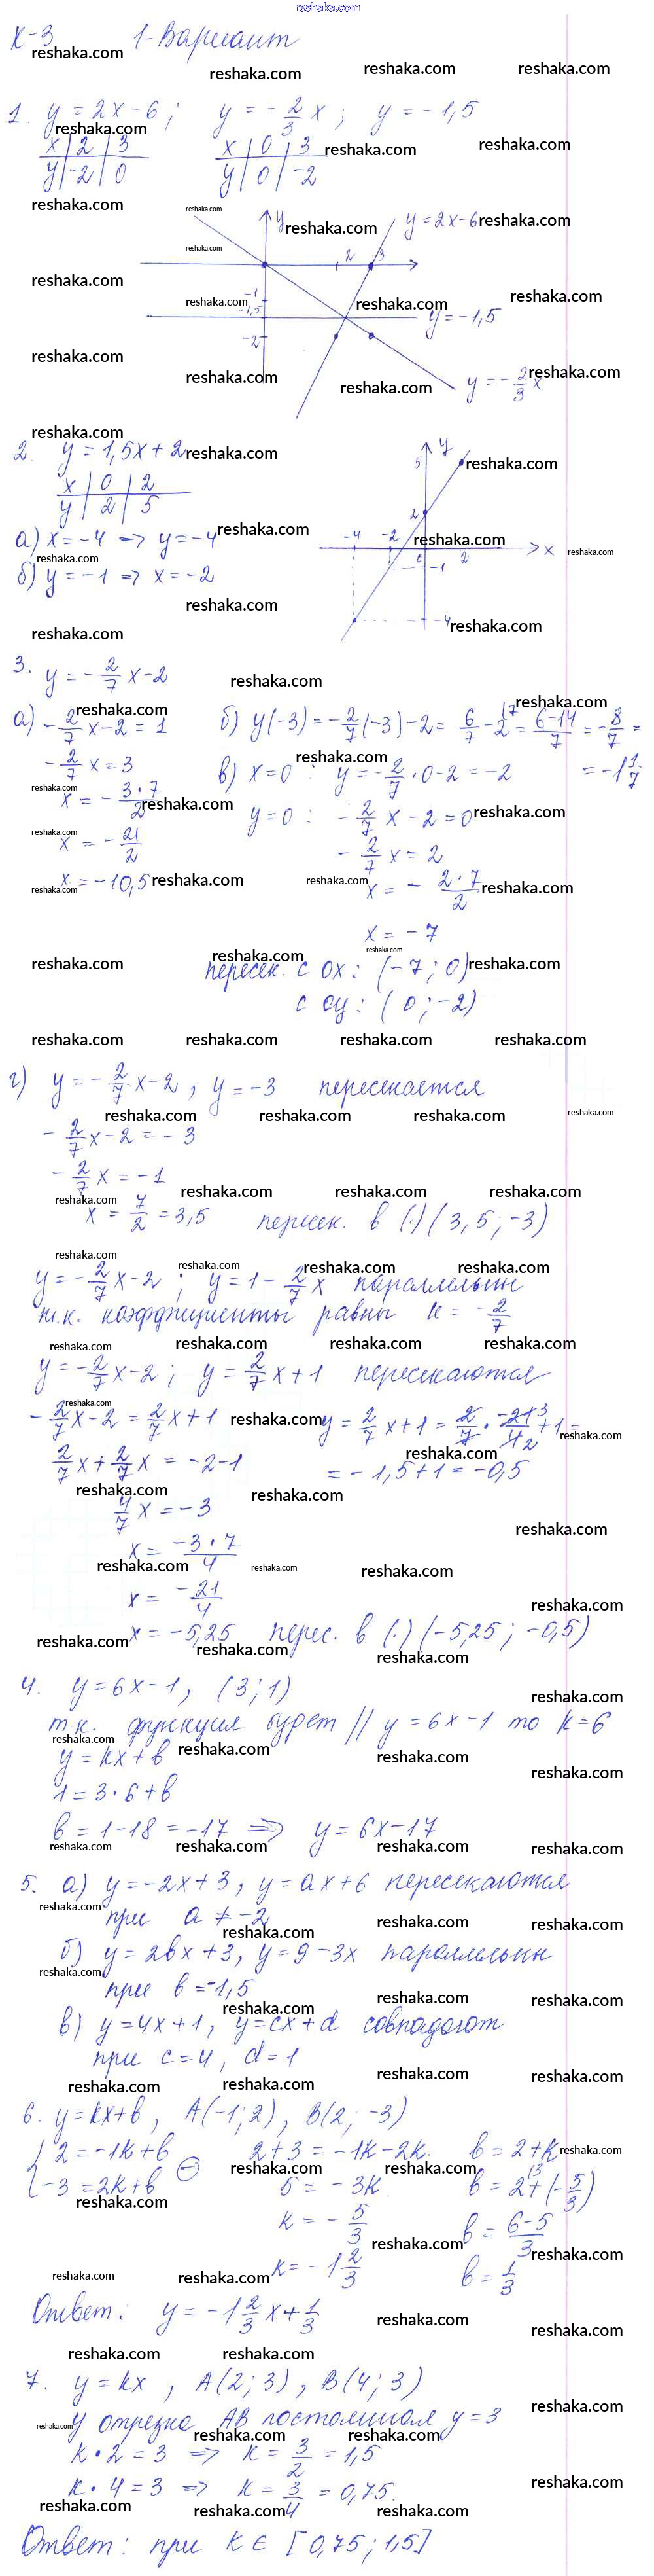 reshaka.com
К-3 1-Вариант
1. y = 2x - 6; y = -2/3 x; y = -1,5
x | 2 | 3
y | -2 | 0
x | 0 | 3
y | 0 | -2
y
y = 2x - 6
2 3
-1
-1,5
y = -1,5
-2
y = -2/3 x
2. y = 1,5x + 2
x | 0 | 2
y | 2 | 5
а) x = -4 => y = -4
б) y = -1 => x = -2
y
5
2
-4 -2 0 2 x
-1
-4
3. y = -2/7 x - 2
а) -2/7 x - 2 = 1
-2/7 x = 3
x = - 3·7/2
x = - 21/2
x = -10,5
б) y(-3) = -2/7 (-3) - 2 = 6/7 - 2 = (6-14)/7 = -8/7 =
= -1 1/7
в) x = 0 : y = -2/7 · 0 - 2 = -2
y = 0 : -2/7 x - 2 = 0
-2/7 x = 2
x = - 2·7/2
x = -7
пересек. с ox: (-7; 0)
с oy: (0; -2)
г) y = -2/7 x - 2, y = -3 пересекается
-2/7 x - 2 = -3
-2/7 x = -1
x = 7/2 = 3,5 пересек. в (.) (3,5; -3)
y = -2/7 x - 2; y = 1 - 2/7 x параллельны
т.к. коэффициенты равны k = -2/7
y = -2/7 x - 2; y = 2/7 x + 1 пересекаются
-2/7 x - 2 = 2/7 x + 1 y = 2/7 x + 1 = 2/7 · -21/4 + 1 =
2/7 x + 2/7 x = -2 - 1 = -1,5 + 1 = -0,5
4/7 x = -3
x = -3·7/4
x = -21/4
x = -5,25 перес. в (.) (-5,25; -0,5)
4. y = 6x - 1, (3; 1)
т.к. функция будет // y = 6x - 1 то k = 6
y = kx + b
1 = 3·6 + b
b = 1 - 18 = -17 => y = 6x - 17
5. а) y = -2x + 3, y = ax + 6 пересекаются
при a ≠ -2
б) y = 2bx + 3, y = 9 - 3x параллельны
при b = -1,5
в) y = 4x + 1, y = cx + d совпадают
при c = 4, d = 1
6. y = kx + b, A(-1; 2), B(2; -3)
{ 2 = -1k + b
-3 = 2k + b
2 + 3 = -1k - 2k
5 = -3k
k = -5/3
k = -1 2/3
b = 2 + k
b = 2 + (-5/3)
b = (6-5)/3
b = 1/3
Ответ: y = -1 2/3 x + 1/3
7. y = kx, A(2; 3), B(4; 3)
У отрезка AB постоянная y = 3
k·2 = 3 => k = 3/2 = 1,5
k·4 = 3 => k = 3/4 = 0,75.
Ответ: при k ∈ [0,75; 1,5]